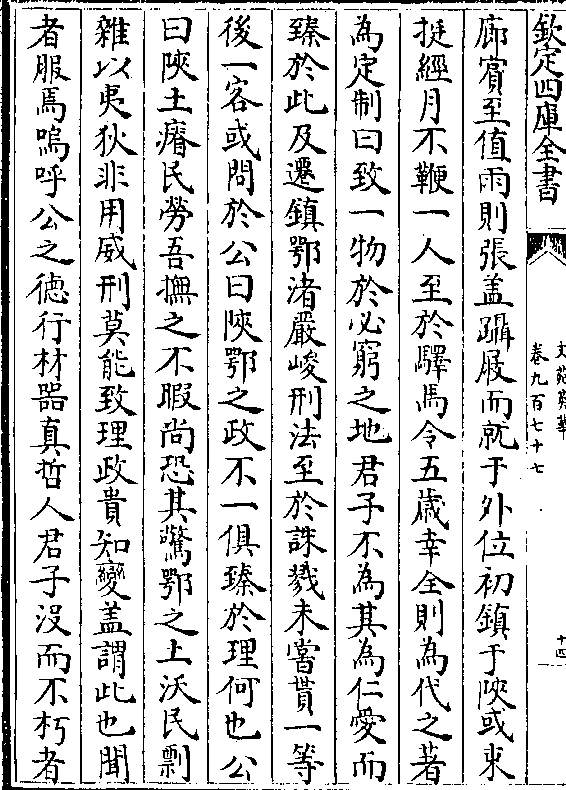 欽定四庫全書
文苑英華
卷九百七十七
十四
廊賓至值雨則張盖躡屐而就于外位初鎮于陜或束
挺經月不鞭一人至於驛馬令五歲幸全則為代之著
為定制曰致一物於必窮之地君子不為其為仁愛而
臻於此及遷鎮鄂渚嚴峻刑法至於誅戮未嘗貰一等
後一客或問於公曰陜鄂之政不一俱臻於理何也公
曰陜土瘠民勞吾撫之不暇尚恐其驚鄂之土沃民剽
雜以夷狄非用威刑莫能致理政貴知變盖謂此也聞
者服焉嗚呼公之德行材器真哲人君子沒而不朽者